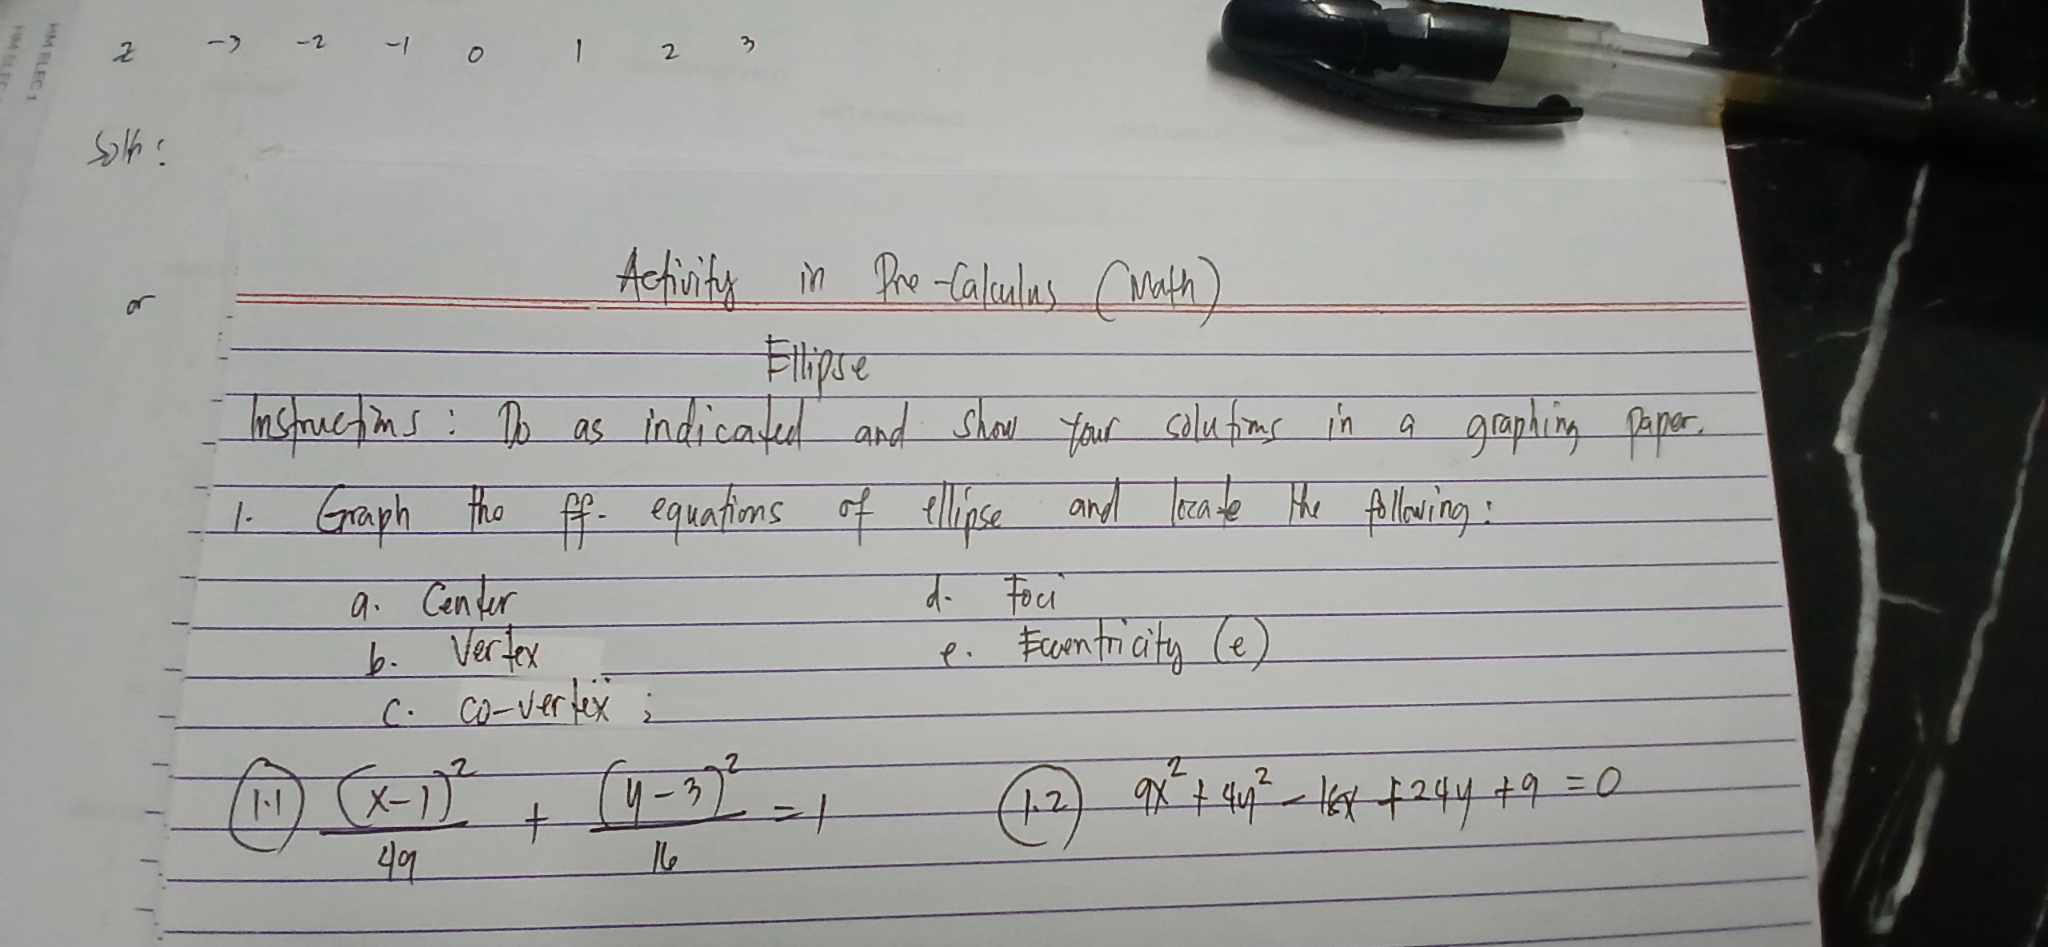 HM ELEC 1
z -3 -2 -1 0 1 2 3
Soln:
or
Activity in Pre-Calculus (Math)
Ellipse
Instructions: Do as indicated and show your solutions in a graphing paper.
1. Graph the ff. equations of ellipse and locate the following:
a. Center d. Foci
b. Vertex e. Eccentricity (e)
c. co-vertex ;
1.1 (x-1)²/49 + (y-3)²/16 = 1 1.2 9x² + 4y² - 18x + 24y + 9 = 0